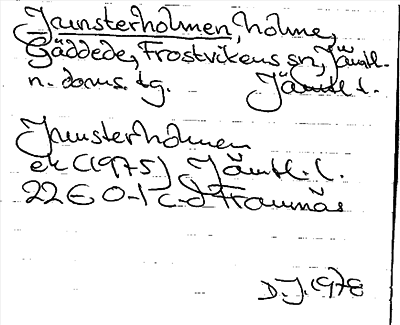 Jaunsterholmen, holme,
Gäddede, Frostvikens sn, Jämtl.
n. doms. tg. Jämtl l.
Jaunsterholmen
ek (1975) Jämtl. l.
22E 0-1 c-d Frannäs
D.J. 1978